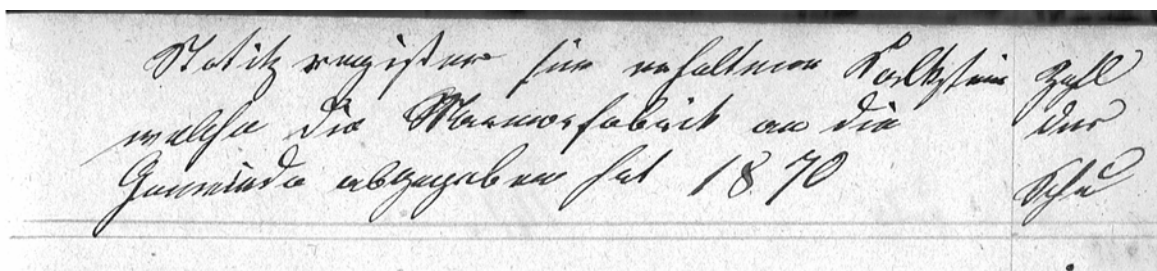 Notitzregister für erhaltenen Kalkstein
welche die Marmorfabrick an die
Gemeinde abgegeben hat 1870
Zahl
der